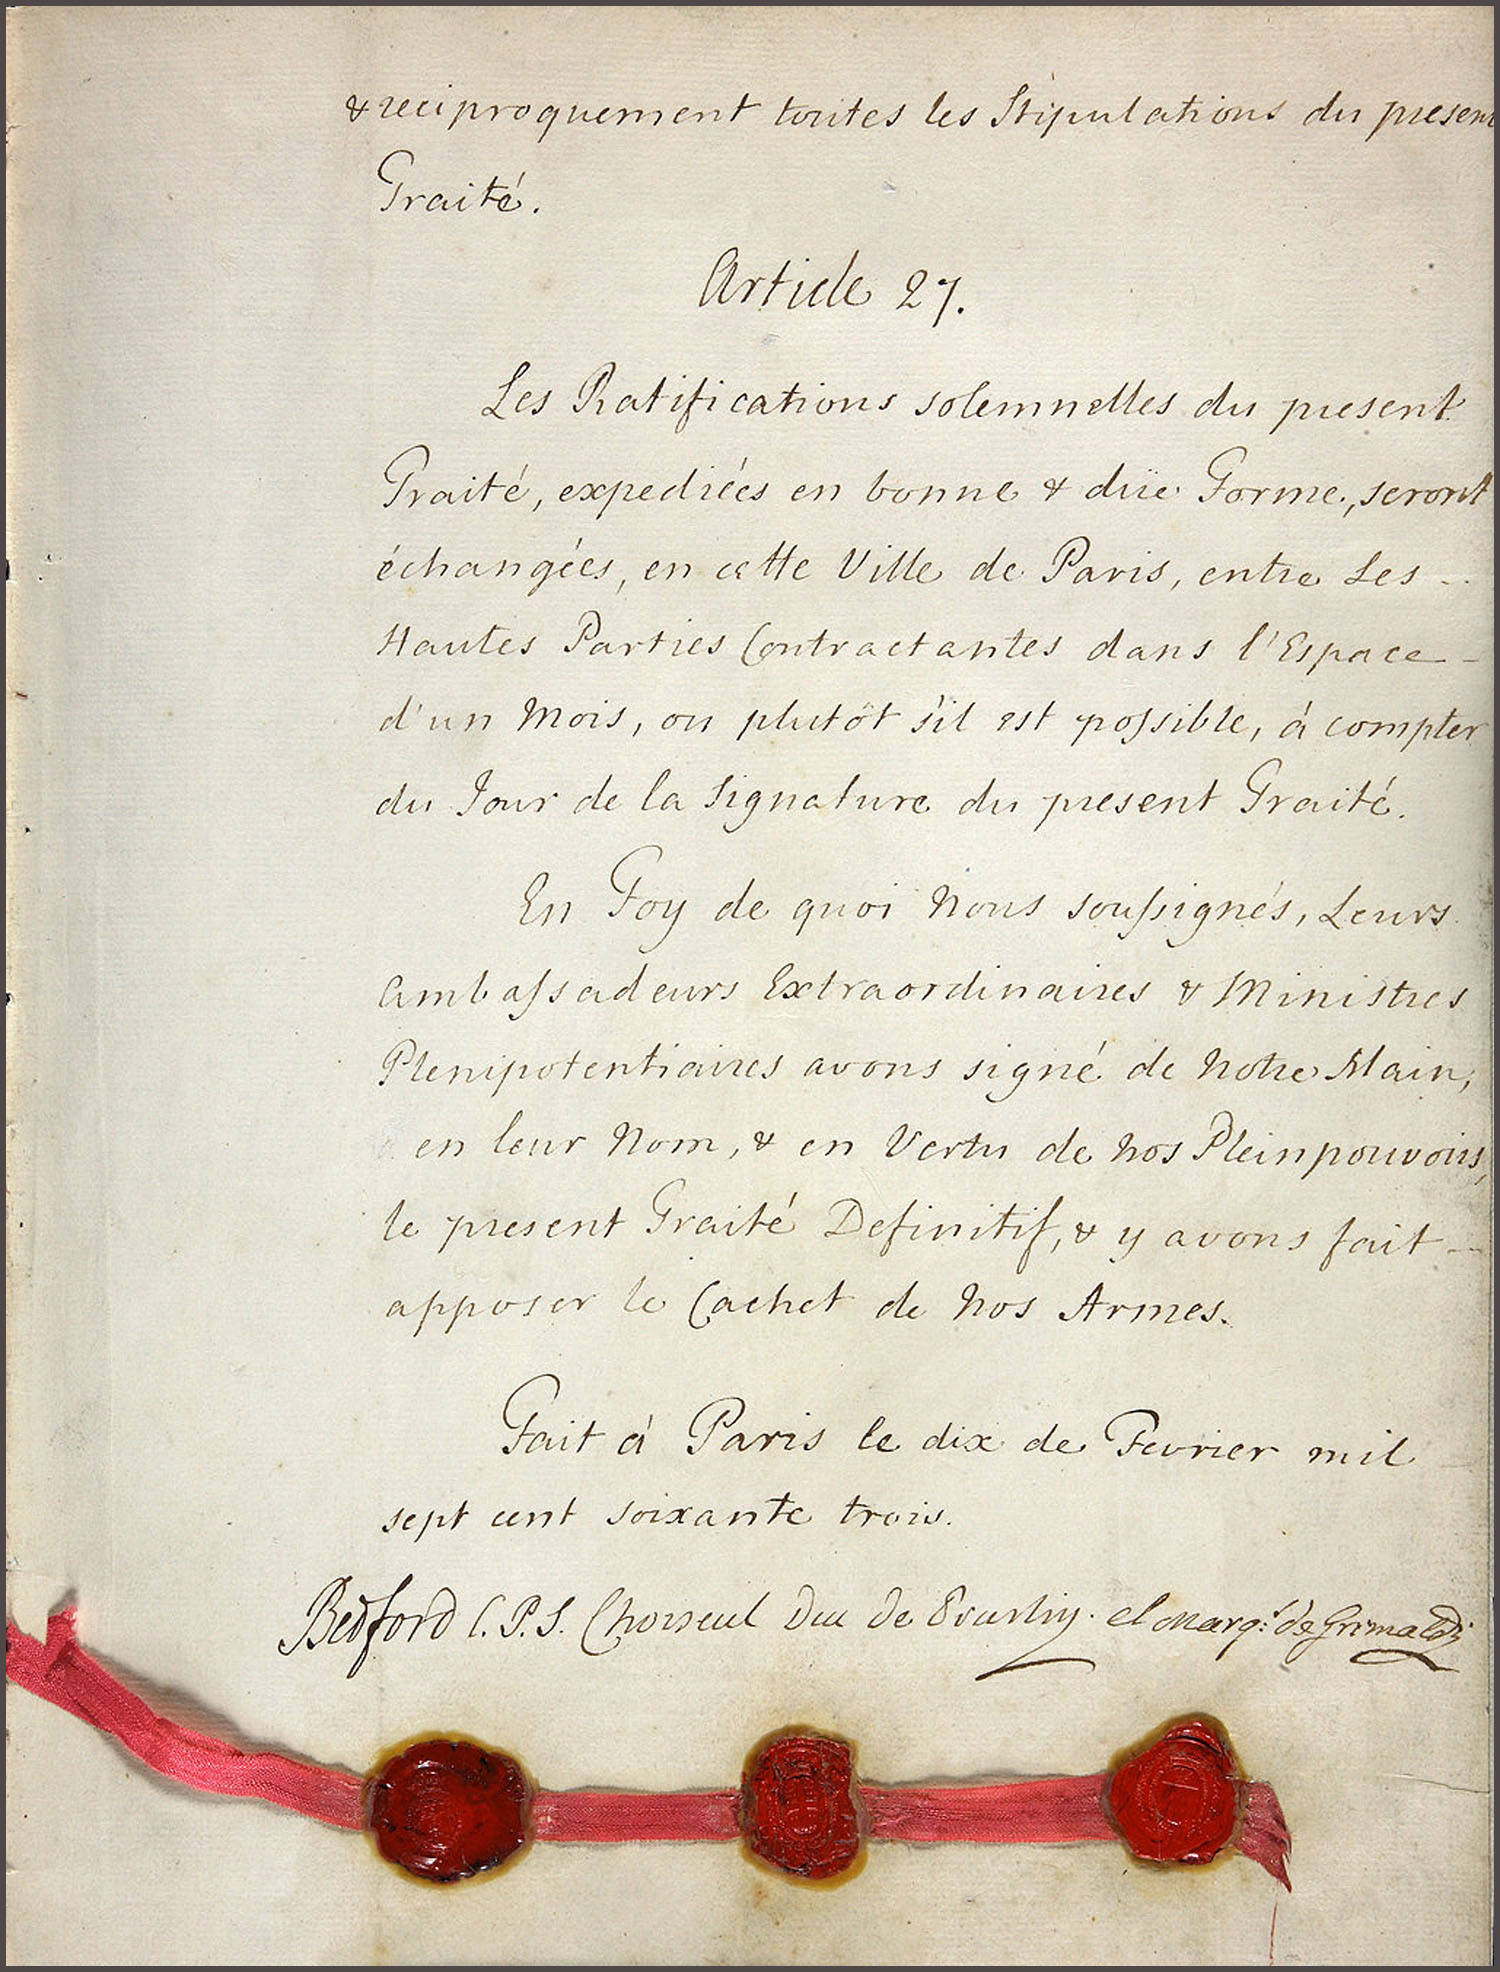 & reciproquement toutes les Stipulations du present
Traité.
Article 27.
Les Ratifications solemnelles du present
Traité, expediées en bonne & düe Forme, seront
échangées, en cette Ville de Paris, entre Les
Hautes Parties Contractantes dans l'Espace
d'un Mois, ou plutôt s'il est possible, à compter
du Jour de la Signature du present Traité.
En Foy de quoi Nous soussignés, Leurs
Ambassadeurs Extraordinaires & Ministres
Plenipotentiaires avons signé de Notre Main,
en leur Nom, & en Vertu de nos Pleinpouvoirs,
le present Traité Definitif, & y avons fait
apposer le Cachet de nos Armes.
Fait à Paris le dix de Fevrier mil
sept cent soixante trois.
Bedford C.P.S. Choiseul Duc de Praslin. el Marq.s de Grimaldi